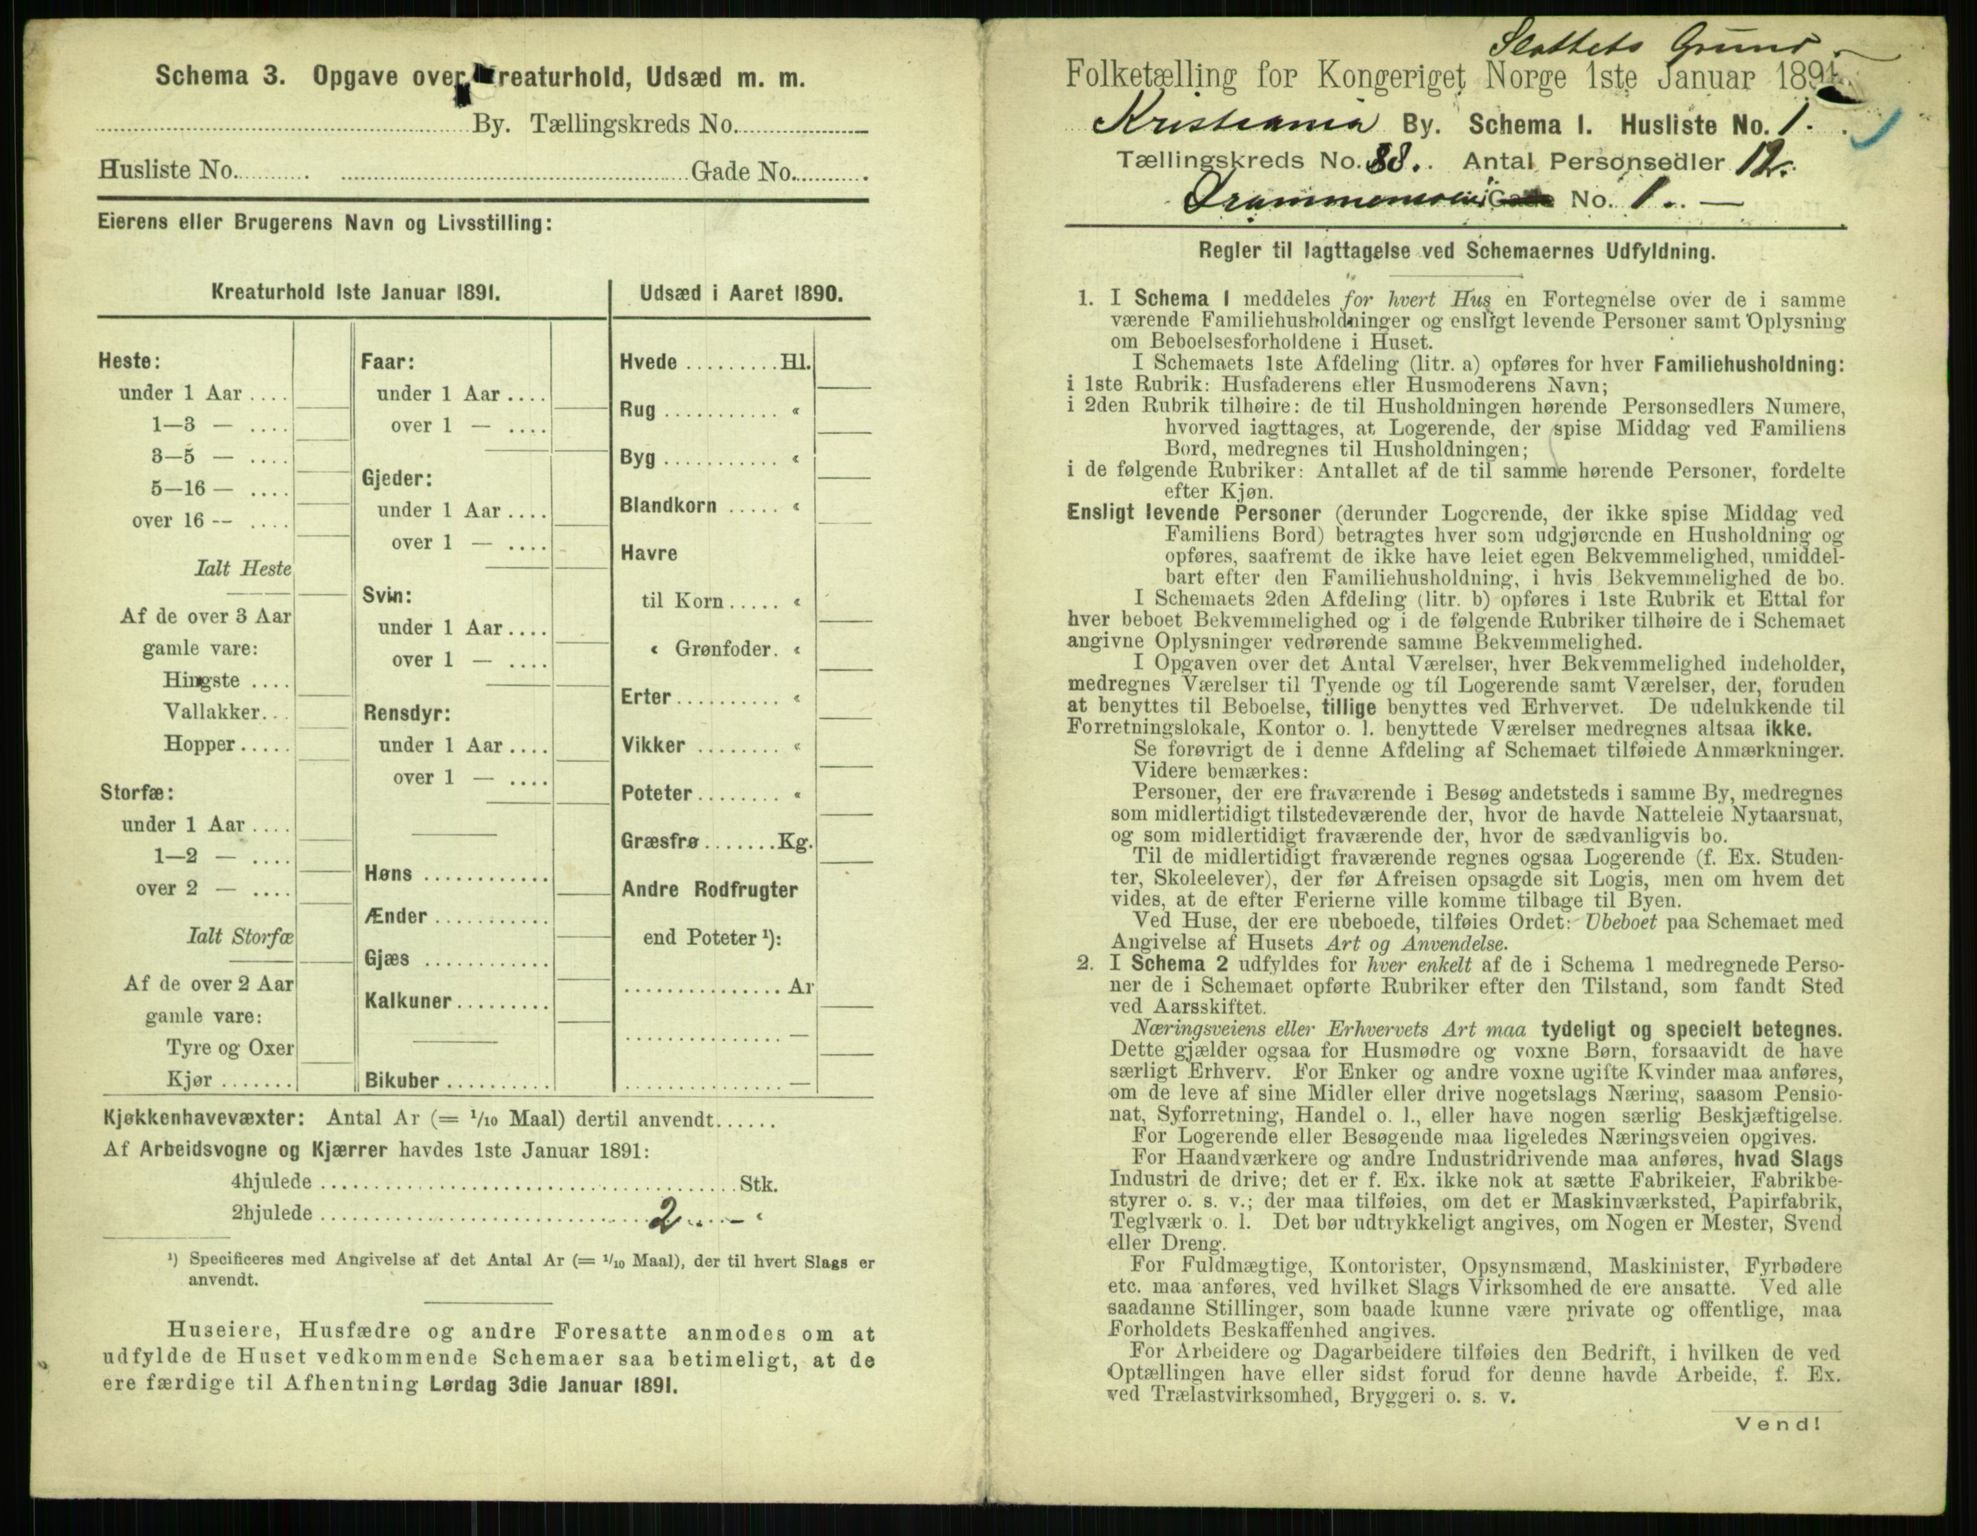 Schema 3. Opgave over Kreaturhold, Udsæd m. m.
By. Tællingskreds No.
Husliste No. Gade No.
Eierens eller Brugerens Navn og Livsstilling:
Kreaturhold 1ste Januar 1891.
Heste:
under 1 Aar ....
1—3 — ....
3—5 — ....
5—16 — ....
over 16 — ....
Ialt Heste
Af de over 3 Aar
gamle vare:
Hingste ....
Vallakker...
Hopper.....
Storfæ:
under 1 Aar ....
1—2 — ....
over 2 — ....
Ialt Storfæ
Af de over 2 Aar
gamle vare:
Tyre og Oxer
Kjør .......
Faar:
under 1 Aar ....
over 1 — ....
Gjeder:
under 1 Aar ....
over 1 — ....
Svin:
under 1 Aar ....
over 1 — ....
Rensdyr:
under 1 Aar ....
over 1 — ....
Høns ............
Ænder ...........
Gjæs ............
Kalkuner.........
Bikuber ..........
Udsæd i Aaret 1890.
Hvede .........Hl.
Rug ........... «
Byg ........... «
Blandkorn ..... «
Havre
til Korn ..... «
« Grønfoder. «
Erter.......... «
Vikker ........ «
Poteter........ «
Græsfrø .......Kg.
Andre Rodfrugter
end Poteter ¹):
............... Ar
............... —
............... —
Kjøkkenhavevæxter: Antal Ar (= 1/10 Maal) dertil anvendt......
Af Arbeidsvogne og Kjærrer havdes 1ste Januar 1891:
4hjulede ........................................ Stk.
2hjulede ................................ 2 ..—«
¹) Specificeres med Angivelse af det Antal Ar (= 1/10 Maal), der til hvert Slags er
anvendt.
Huseiere, Husfædre og andre Foresatte anmodes om at
udfylde de Huset vedkommende Schemaer saa betimeligt, at de
ere færdige til Afhentning Lørdag 3die Januar 1891.
Slottets Grund
Folketælling for Kongeriget Norge 1ste Januar 1891.
Kristiania By. Schema 1. Husliste No. 1.
Tællingskreds No. 88. Antal Personsedler 12.
Drammensvei Gade No. 1. —
Regler til Iagttagelse ved Schemaernes Udfyldning.
1. I Schema 1 meddeles for hvert Hus en Fortegnelse over de i samme
værende Familiehusholdninger og ensligt levende Personer samt Oplysning
om Beboelsesforholdene i Huset.
I Schemaets 1ste Afdeling (litr. a) opføres for hver Familiehusholdning:
i 1ste Rubrik: Husfaderens eller Husmoderens Navn;
i 2den Rubrik tilhøire: de til Husholdningen hørende Personsedlers Numere,
hvorved iagttages, at Logerende, der spise Middag ved Familiens
Bord, medregnes til Husholdningen;
i de følgende Rubriker: Antallet af de til samme hørende Personer, fordelte
efter Kjøn.
Ensligt levende Personer (derunder Logerende, der ikke spise Middag ved
Familiens Bord) betragtes hver som udgjørende en Husholdning og
opføres, saafremt de ikke have leiet egen Bekvemmelighed, umiddel-
bart efter den Familiehusholdning, i hvis Bekvemmelighed de bo.
I Schemaets 2den Afdeling (litr. b) opføres i 1ste Rubrik et Ettal for
hver beboet Bekvemmelighed og i de følgende Rubriker tilhøire de i Schemaet
angivne Oplysninger vedrørende samme Bekvemmelighed.
I Opgaven over det Antal Værelser, hver Bekvemmelighed indeholder,
medregnes Værelser til Tyende og til Logerende samt Værelser, der, foruden
at benyttes til Beboelse, tillige benyttes ved Erhvervet. De udelukkende til
Forretningslokale, Kontor o. l. benyttede Værelser medregnes altsaa ikke.
Se forøvrigt de i denne Afdeling af Schemaet tilføiede Anmærkninger.
Videre bemærkes:
Personer, der ere fraværende i Besøg andetsteds i samme By, medregnes
som midlertidigt tilstedeværende der, hvor de havde Natteleie Nytaarsnat,
og som midlertidigt fraværende der, hvor de sædvanligvis bo.
Til de midlertidigt fraværende regnes ogsaa Logerende (f. Ex. Studen-
ter, Skoleelever), der før Afreisen opsagde sit Logis, men om hvem det
vides, at de efter Ferierne ville komme tilbage til Byen.
Ved Huse, der ere ubeboede, tilføies Ordet: Ubeboet paa Schemaet med
Angivelse af Husets Art og Anvendelse.
2. I Schema 2 udfyldes for hver enkelt af de i Schema 1 medregnede Perso-
ner de i Schemaet opførte Rubriker efter den Tilstand, som fandt Sted
ved Aarsskiftet.
Næringsveiens eller Erhvervets Art maa tydeligt og specielt betegnes.
Dette gjælder ogsaa for Husmødre og voxne Børn, forsaavidt de have
særligt Erhverv. For Enker og andre voxne ugifte Kvinder maa anføres,
om de leve af sine Midler eller drive nogetslags Næring, saasom Pensio-
nat, Syforretning, Handel o. l., eller have nogen særlig Beskjæftigelse.
For Logerende eller Besøgende maa ligeledes Næringsveien opgives.
For Haandværkere og andre Industridrivende maa anføres, hvad Slags
Industri de drive; det er f. Ex. ikke nok at sætte Fabrikeier, Fabrikbe-
styrer o. s. v.; der maa tilføies, om det er Maskinværksted, Papirfabrik,
Teglværk o. l. Det bør udtrykkeligt angives, om Nogen er Mester, Svend
eller Dreng.
For Fuldmægtige, Kontorister, Opsynsmænd, Maskinister, Fyrbødere
etc. maa anføres, ved hvilket Slags Virksomhed de ere ansatte. Ved alle
saadanne Stillinger, som baade kunne være private og offentlige, maa
Forholdets Beskaffenhed angives.
For Arbeidere og Dagarbeidere tilføies den Bedrift, i hvilken de ved
Optællingen have eller sidst forud for denne havde Arbeide, f. Ex.
ved Trælastvirksomhed, Bryggeri o. s. v.
Vend!